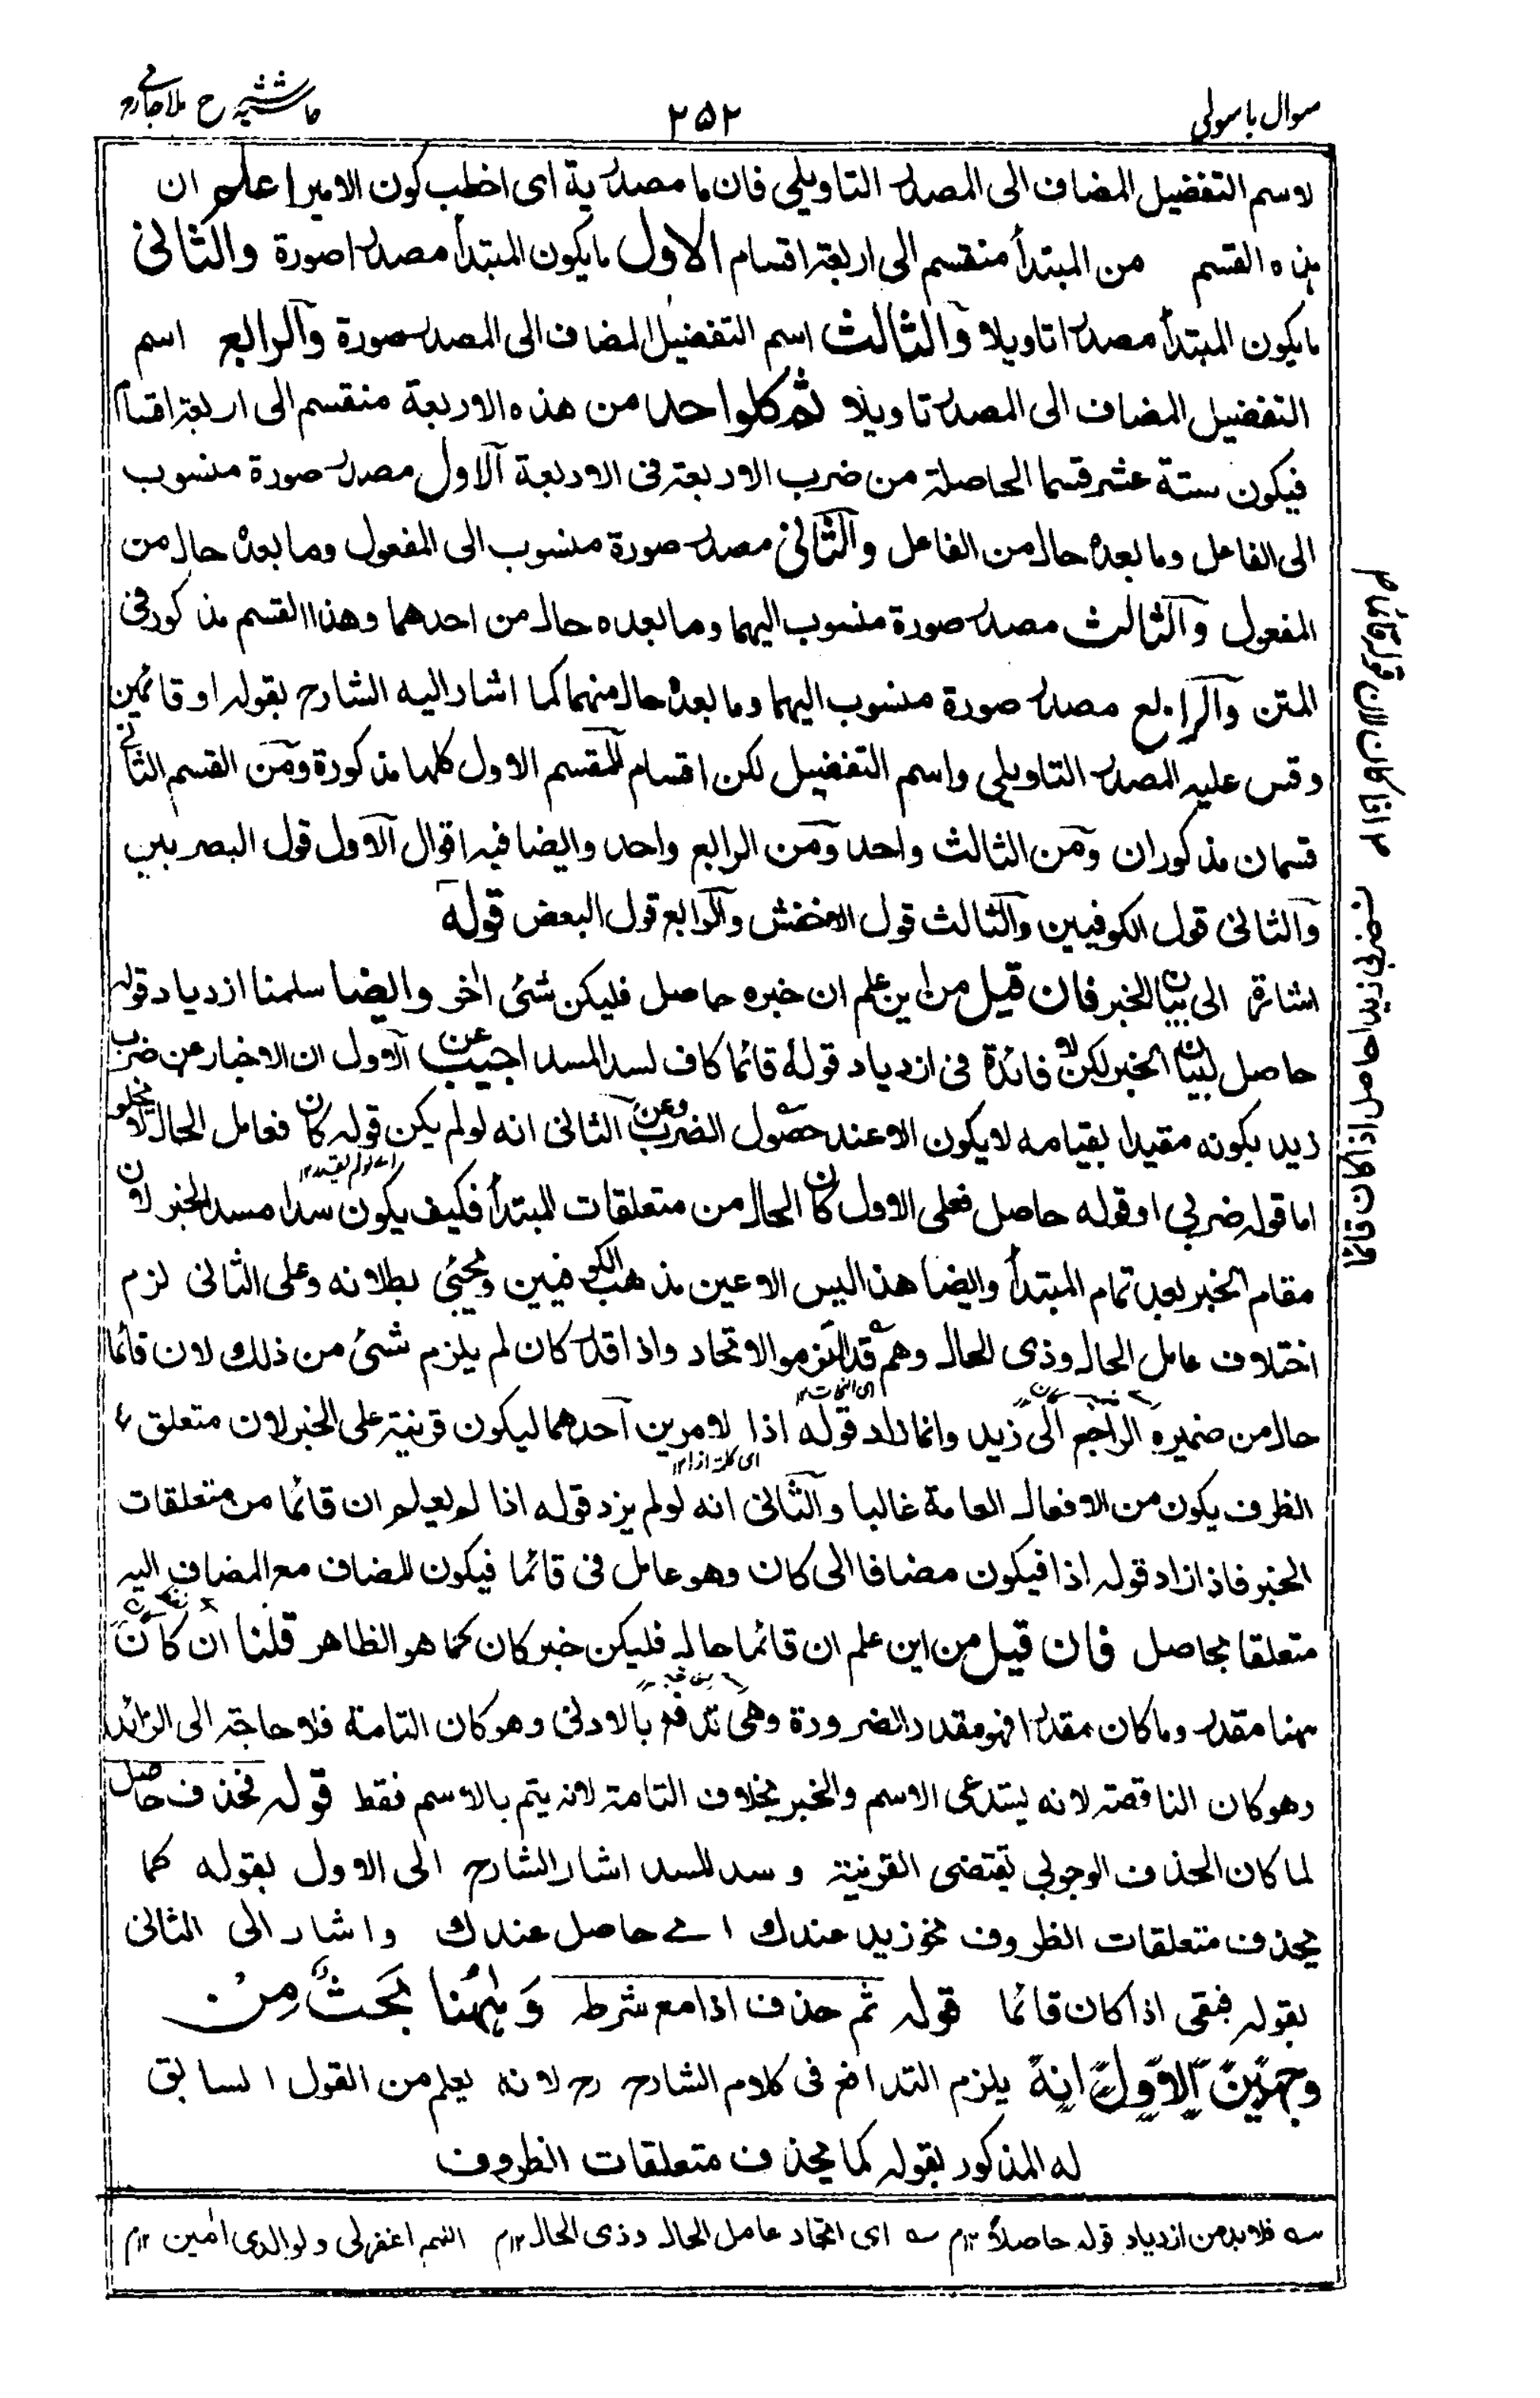 سوال باسولي
۲۵۲
حاشیه شرح ملا جامی رح
لاسم التفضیل المضاف الی المصدر التاویلی فان ما مصدریة ای اخطب کون الامیر اعلم ان
هذه القسم من المبتدأ منقسم الی اربعة اقسام الاول مایکون المبتدأ مصدرا صورة والثانی
مایکون المبتدأ مصدرا تاویلا والثالث اسم التفضیل المضاف الی المصدر صورة والرابع اسم
التفضیل المضاف الی المصدر تاویلا ثم کلواحد من هذه الاربعة منقسم الی اربعة اقسام
فیکون ستة عشر قسما الحاصلة من ضرب الاربعة فی الاربعة الاول مصدر صورة منسوب
الی الفاعل وما بعده حال من الفاعل والثانی مصدر صورة منسوب الی المفعول وما بعده حال من
المفعول والثالث مصدر صورة منسوب الیهما وما بعده حال من احدهما وهذا القسم مذکور فی
المتن والرابع مصدر صورة منسوب الیهما وما بعده حال منهما کما اشار الیه الشارح بقوله او قائمین
وقس علیه المصدر التاویلی واسم التفضیل لکن اقسام المقسم الاول کلها مذکورة ومن القسم الثانی
قسمان مذکوران ومن الثالث واحد ومن الرابع واحد وایضا فیه اقوال الاول قول البصریین
والثانی قول الکوفیین والثالث قول الاخفش والرابع قول البعض قوله
اشارة الی بیان الخبر فان قیل من این علم ان خبره حاصل فلیکن شئ اخر وایضا سلمنا ازدیاد قوله
حاصل لبیان الخبر لکن لا فائدة فی ازدیاد قوله قائما کاف لسد المسد اجیب عن الاول ان الاخبار عن ضرب
زید بکونه مقیدا بقیامه لایکون الا عند حصول الضرب وعن الثانی انه لو لم یکن قوله کان فعامل الحال لا یخلو
اما قوله ضربی او قوله حاصل فعلی الاول کان الحال من متعلقات المبتدأ فکیف یکون سدا مسد الخبر لان
مقام الخبر بعد تمام المبتدأ وایضا هذا لیس الا عین مذهب الکوفیین ویجئی بطلانه وعلی الثانی لزم
اختلاف عامل الحال وذی الحال وهم قد التزموا الاتحاد واذا قدر کان لم یلزم شئ من ذلک لان قائما
حال من ضمیره الراجع الی زید وانما زاد قوله اذا لامرین احدهما لیکون قرینة علی الخبر لان متعلق
الظرف یکون من الافعال العامة غالبا والثانی انه لو لم یزد قوله اذا لو یعلم ان قائما من متعلقات
الخبر فاذا زاد قوله اذا فیکون مضافا الی کان وهو عامل فی قائما فیکون المضاف مع المضاف الیه
متعلقا بحاصل فان قیل من این علم ان قائما حاله فلیکن خبر کان کما هو الظاهر قلنا ان کان
ههنا مقدر وما کان مقدرا فهو مقدر للضرورة وهی تدفع بالادنی وهو کان التامة فلا حاجة الی الزائد
وهو کان الناقصة لانه یستدعی الاسم والخبر بخلاف التامة لانه یتم بالاسم فقط قوله فحذف حاصل
لما کان الحذف الوجوبی یقتضی القرینة و سد المسد اشار الشارح الی الاول بقوله کما
یحذف متعلقات الظروف نحو زید عندک ای حاصل عندک واشار الی الثانی
بقوله فبقی اذا کان قائما قوله ثم حذف اذا مع شرطه وَهٰهُنا بَحَثٌ مِنْ
وجهین الاول انه یلزم التدافع فی کلام الشارح رح لانه یعلم من القول السابق
له المذکور بقوله کما یحذف متعلقات الظروف
فلابد من ازدیاد قوله حاصلا ۱۲م ای اتحاد عامل الحال وذی الحال ۱۲م اللهم اغفرلی ولوالدی امین ۱۲م